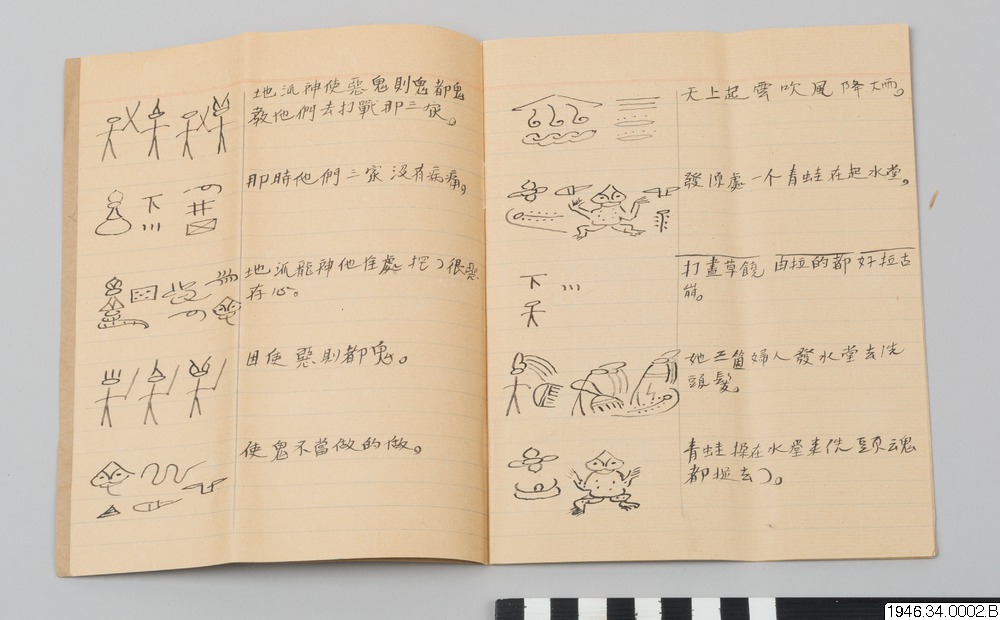 地派神使惡鬼則鬼都鬼
發他們去打戰那三家。
即時他們三家沒有病痛。
地派龍神他住處 很惡
存心。
因使惡則都鬼。
使鬼不當做的做。
天上起雲吹風降大雨。
發源處一个青蛙在起水堂。
打畫草 的都好拉古
崩。
她三箇婦人發水堂去洗
頭髮。
青蛙 在水堂来洗頭魂
都 去了。
1946.34.0002.B